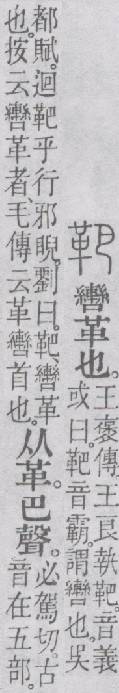 靶
轡革也。王褒傳。王良執靶。音義
或曰。靶音霸。謂轡也。吴
都賦。迴靶乎行邪睨。劉曰。靶、轡革
也。按云轡革者、毛傳云革轡首也。
从革。巴聲。必駕切。古
音在五部。